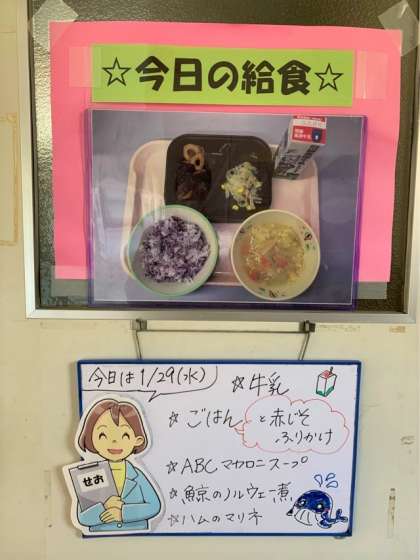 ☆今日の給食☆
今日は1/29(水)
☆牛乳
☆ごはん と赤じそ
ふりかけ
☆ABCマカロニスープ
☆鯨のノルウェー煮
☆ハムのマリネ
せお